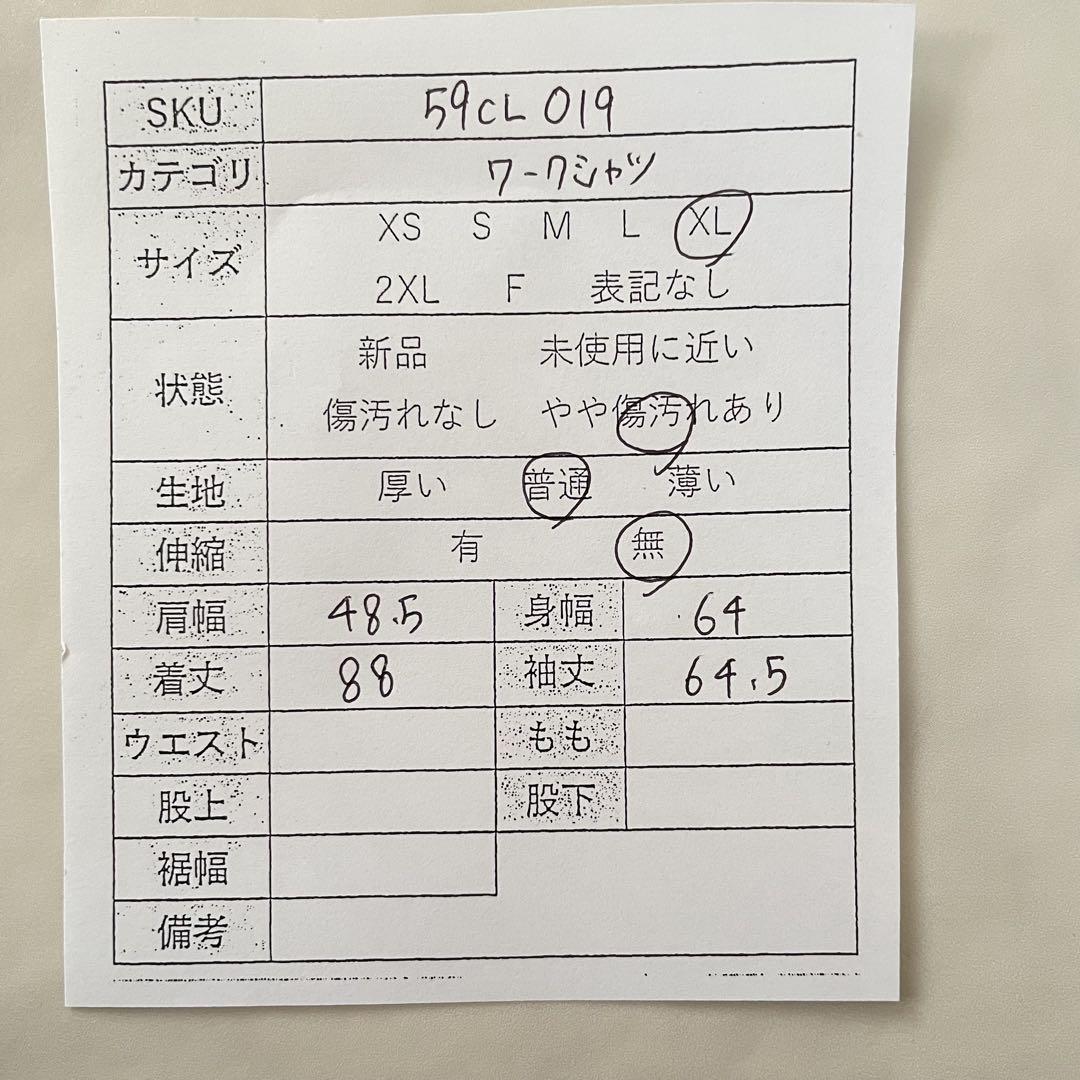 SKU 59CL019
カテゴリ ワークシャツ
サイズ XS S M L XL
2XL F 表記なし
状態 新品 未使用に近い
傷汚れなし やや傷汚れあり
生地 厚い 普通 薄い
伸縮 有 無
肩幅 48.5 身幅 64
着丈 88 袖丈 64.5
ウエスト もも
股上 股下
裾幅
備考